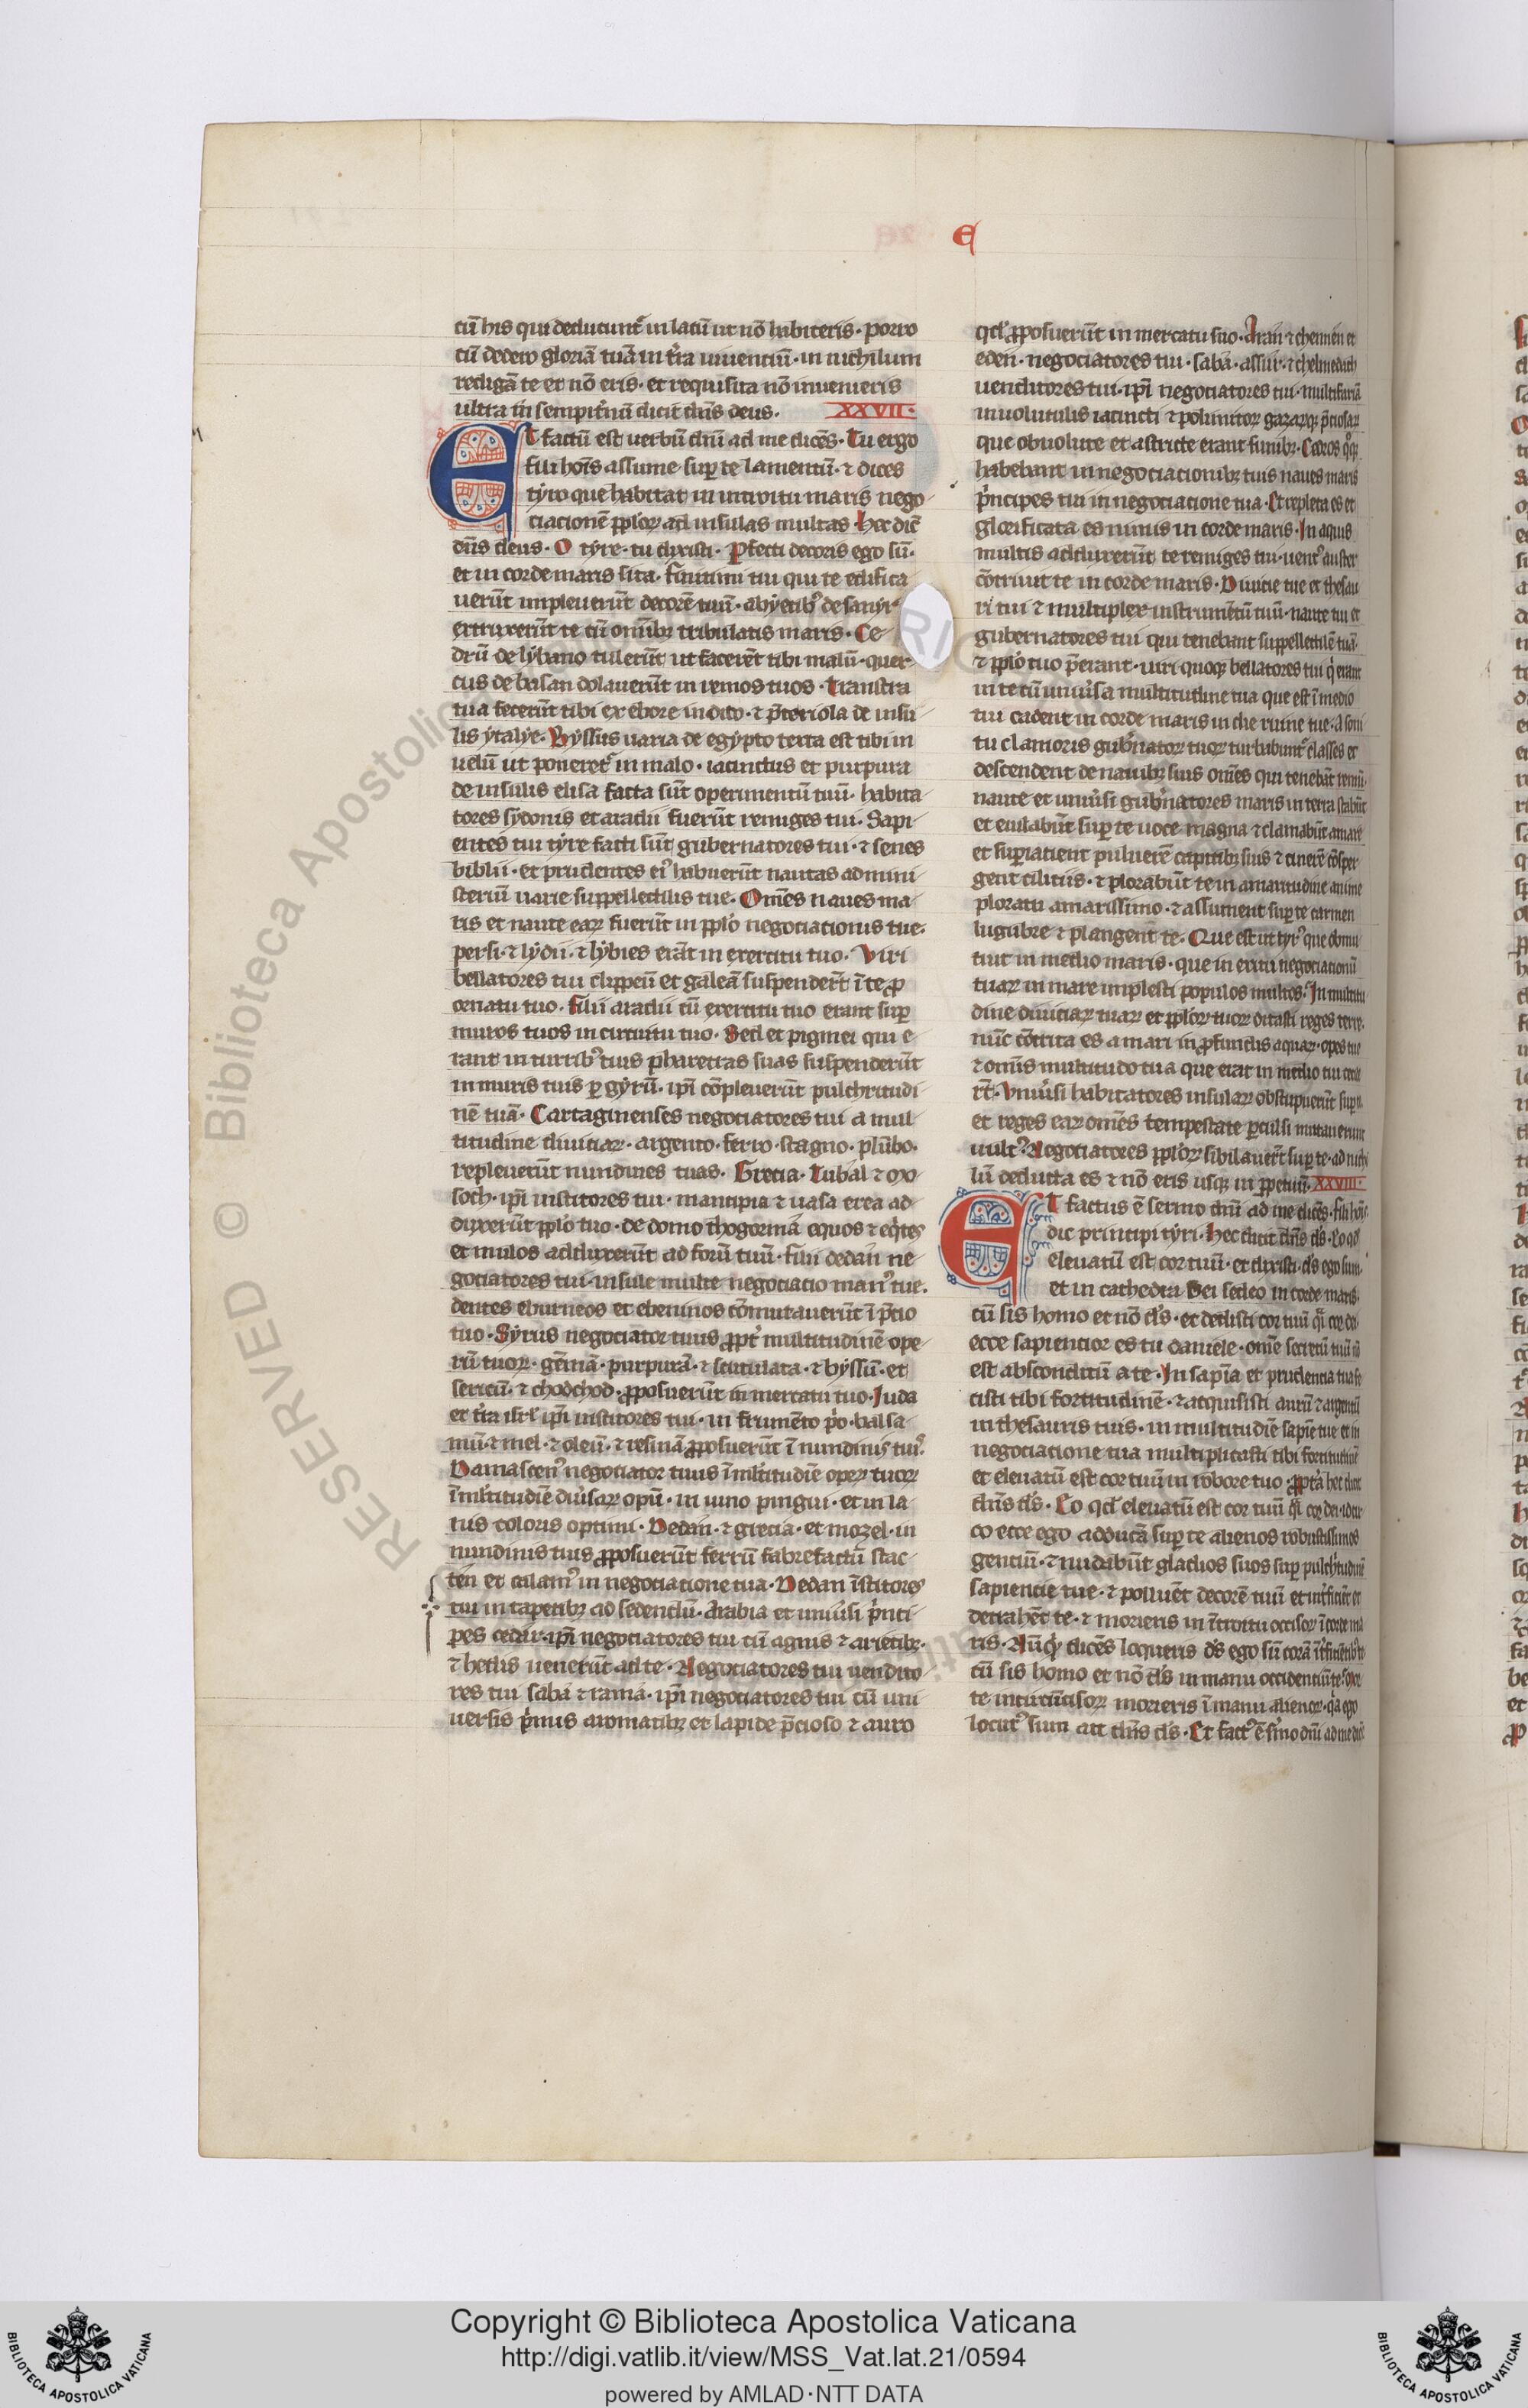 E
cū his qui deducunt᷑ in lacū ut nō habiteris · porro
cū dedero gloriā tuā in t̄ra uiuentiū · in nichilum
redigā te et nō eris · et requisita nō inuenieris
ultra in sempit̄nū dicit dn̄s deus .
XXVII ·
ET factū est uerbū dn̄i ad me dicēs · Tu ergo
fili hoīs assume sup te lamentū · ⁊ dices
tyro que habitat in introitu maris nego
ciacionē pplōꝝ ad insulas multas hec dic̄
dn̄s deus · O tyre · tu dixisti · Pfecti decoris ego sū ·
et in corde maris sita · finitimi tui qui te edifica
uerūt impleuerūt decorē tuū · abyetibꝰ de sanyr
extruxerūt te cū omībꝫ tribulatis maris · Ce
drū de lybano tulerūt ut facerēt tibi malū · quer
cus de basan dolauerūt in remos tuos · Transtra
tua fecerūt tibi ex ebore indico · ⁊ p̄toriola de insu
lis ytalye · Byssus uaria de egypto texta est tibi in
uelū ut poneret᷑ in malo · iacinctus et purpura
de insulis elisa facta sūt operimentū tuū · habita
tores sydonis et aradii fuerūt remiges tui · Sapi
entes tui tyre facti sūt gubernatores tui · ⁊ senes
biblii · et prudentes eiꝰ habuerūt nautas ad mini
steriū uarie suppellectilis tue · Omēs naues ma
ris et naute eaꝝ fuerūt in pplō negociationis tue ·
perse · ⁊ lydii · ⁊ lybies erāt in exercitu tuo · Viri
bellatores tui clippeū et galeā suspender̄t ī te ꝓ
ornatu tuo · filii aradii cū exercitu tuo erant sup
muros tuos in circuitu tuo · Sed et pigmei qui e
rant in turribꝰ tuis pharetras suas suspenderūt
in muris tuis ꝑ gyrū · ipī cōpleuerūt pulchritudi
nē tuā · Cartaginenses negociatores tui a mul
titudine diuiciaꝝ · argento · ferro · stagno · plūbo ·
repleuerūt nundines tuas · Grecia · Tubal ⁊ mo
soch · ipī institores tui · mancipia ⁊ uasa erea ad
duxerūt pplō tuo · de domo thogormā equos ⁊ eq̇tes
et mulos adduxerūt ad forū tuū · filii dedan ne
gociatores tui · insule multe negociacio manꝰ tue .
dentes eburneos et ebeninos cōmutauerūt ī p̄cio
tuo · Syrus negociator tuus ꝓpt̄ multitudinē ope
rū tuoꝝ · gēmā · purpurā · ⁊ scutulata · ⁊ byssū · et
sericū · ⁊ chodchod · ꝓposuerūt in mercatu tuo · Juda
et t̄ra isrl̄ ipī institores tui · in frumēto p̄o · balsa
mū · ⁊ mel · ⁊ oleū · ⁊ resinā ꝓposuerūt ī nundinis tuiꝰ .
Damascenꝰ negociator tuus ī ml̄titudīe opeꝝ tuoꝝ
ī ml̄titudīe diūsaꝝ opū · in uino pingui · et in la
nis coloris optimi · Dedan · ⁊ grecia · et mozel · in
nundinis tuis ꝓposuerūt ferrū fabrefactū stac
ten et calamꝰ in negociacione tua · Dedan īstitores
tui in tapetibꝫ ad sedendū · Arabia et uniūsi p̄nci
pes cedar · ipī negociatores tui cū agnis ⁊ arietibꝫ ·
⁊ hedis uenerūt ad te · Negociatores tui uendito
res tui saba ⁊ rama · ipī negociatores tui cū uni
uersis p̄mis aromatibꝫ et lapide p̄cioso ⁊ auro
qd̄ ꝓposuerūt in mercatu tuo · Aran · ⁊ chennen et
eden · negociatores tui · saba · assur · ⁊ chelmedach
uenditores tui · ipī negociatores tui · multifariā
inuolutilis iacincti ⁊ polimitoꝝ gazaꝝqꝫ p̄ciosaꝝ
que obuolute et astricte erant funibꝫ · Cedros qͦqꝫ
habebant in negociacionibꝫ tuis naues maris
p̄ncipes tui in negociacione tua · Et repleta es et
glorificata es nimis in corde maris · In aquis
multis adduxerūt te remiges tui · uentꝰ auster
cōtriuit te in corde maris · Diuicie tue et thesau
ri tui ⁊ multiplex instrumētū tuū · naute tui et
gubernatores tui qui tenebant suppellectilē tuā
⁊ pplō tuo p̄erant · uiri quoqꝫ bellatores tui q̇ erant
in te cū uniūsa multitudine tua que est ī medio
tui cadent in corde maris in die ruine tue · A soni
tu clamoris gub̄natoꝝ tuoꝝ turbabunt᷑ classes et
descendent de nauibꝫ suis omēs qui tenebāt remū ·
naute et uniūsi gub̄natores maris in terra stabūt
et eiulabūt sup te uoce magna ⁊ clamabūt amare
et supiacient puluerē capitibꝫ suis ⁊ cinerē cōsper
gent ciliciis · ⁊ plorabūt te in amaritudine anime
ploratu amarissimo · ⁊ assument sup te carmen
lugubre ⁊ plangent te · Que est ut tyrꝰ que obmu
tuit in medio maris · que in exitu negociacionū
tuaꝝ in mare implesti populos multos · In multitu
dine diuiciaꝝ tuaꝝ et pploꝝ tuoꝝ ditasti reges terre ·
nūc cōtrita es a mari in ꝓfundis aquaꝝ · opes tue
⁊ omīs multitudo tua que erat in medio tui ceci
rt̄ · Vniūsi habitatores insulaꝝ obstupuerūt sup te
et reges eaꝝ omēs tempestate ꝑculsi mutauerunt
uultꝰ · Negociatores pploꝝ sibilauer̄t sup te · ad nichi
lū deducta es ⁊ nō eris usqꝫ in ꝑpetuū ·
XXVIII ·
ET factus ē sermo dn̄i ad me dicēs · fili hoīs
dic principi tyri · hec dicit dn̄s ds̄ · Eo qd̄
eleuatū est cor tuū · et dixisti · ds̄ ego sum ·
et in cathedra Dei sedeo in corde maris ·
cū sis homo et nō ds̄ · et dedisti cor tuū q̄i cor dei ·
ecce sapiencior es tu daniele · omē secretū tuū nō
est absconditū a te · In sapīa et prudencia tua fe
cisti tibi fortitudinē · ⁊ acquisisti aurū ⁊ argentū
in thesauris tuis · in multitudīe sapīe tue et in
negociacione tua multiplicasti tibi fortitudinē
et eleuatū est cor tuū in robore tuo · ꝓpt̄a hec dicit
dn̄s ds̄ · Eo qd̄ eleuatū est cor tuū q̄i cor dei · idcir
co ecce ego adducā sup te alienos robustissimos
gentiū · ⁊ nudabūt gladios suos sup pulch̄tudinē
sapiencie tue · ⁊ polluēt decorē tuū et int̄ficiēt et
detrahēt te · ⁊ morieris in īteritu occisoꝝ ī corde ma
ris · Nūqd̄ dicēs loqueris ds̄ ego sū corā īt̄ficiētibꝰ te
cū sis homo et nō ds̄ in manu occidentiū te · morte
te incircūcisoꝝ morieris ī manu alienoꝝ · qa ego
locutꝰ sum ait dn̄s ds̄ · Et factꝰ ē s̄mo dn̄i ad me dicēs
RESERVED © Biblioteca Apostolica
Copyright © Biblioteca Apostolica Vaticana
http://digi.vatlib.it/view/MSS_Vat.lat.21/0594
powered by AMLAD·NTT DATA
BIBLIOTECA APOSTOLICA VATICANA
BIBLIOTECA APOSTOLICA VATICANA